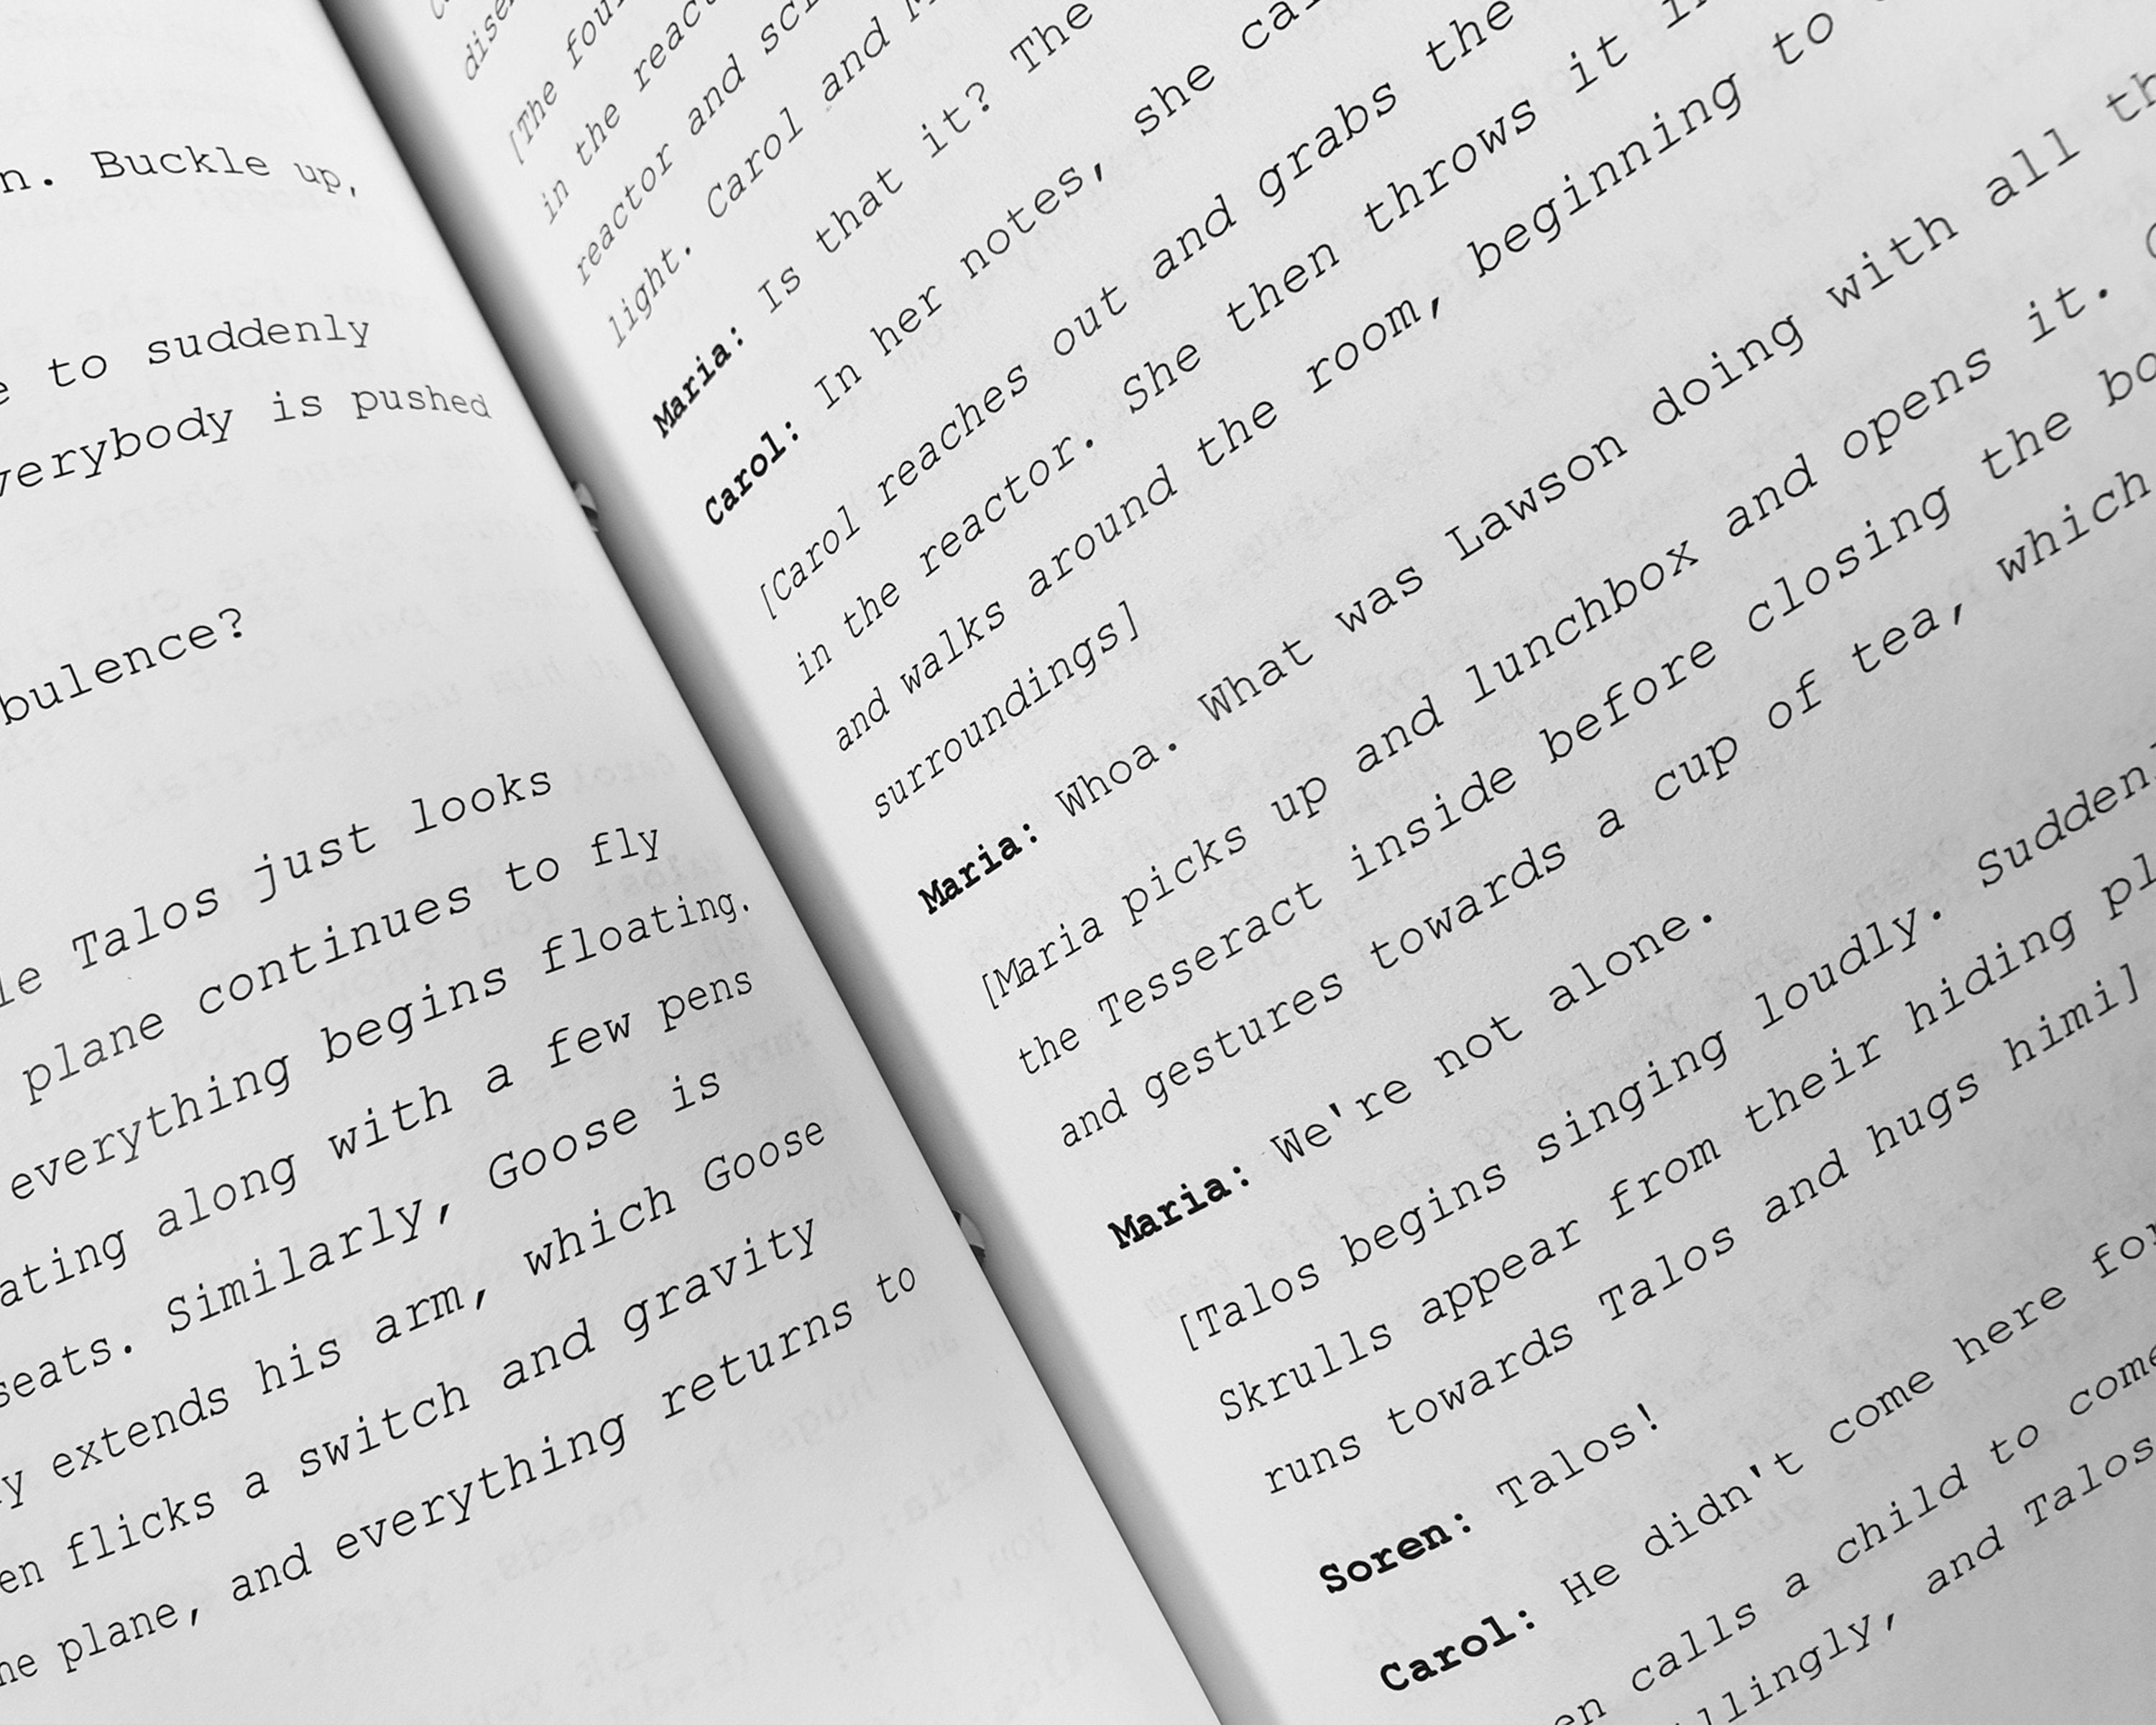 n. Buckle up,
to suddenly
verybody is pushed
bulence?
le Talos just looks
plane continues to fly
everything begins floating.
ating along with a few pens
seats. Similarly, Goose is
y extends his arm, which Goose
en flicks a switch and gravity
he plane, and everything returns to
[The four
in the react
reactor and sci
light. Carol and M
Maria: Is that it? The
Carol: In her notes, she cal
[Carol reaches out and grabs the
in the reactor. She then throws it i
and walks around the room, beginning to
surroundings]
Maria: Whoa. What was Lawson doing with all th
[Maria picks up and lunchbox and opens it.
the Tesseract inside before closing the bo
and gestures towards a cup of tea, which
Maria: We're not alone.
[Talos begins singing loudly. Sudden
Skrulls appear from their hiding pl
runs towards Talos and hugs himi]
Soren: Talos!
Carol: He didn't come here for
en calls a child to come
llingly, and Talos